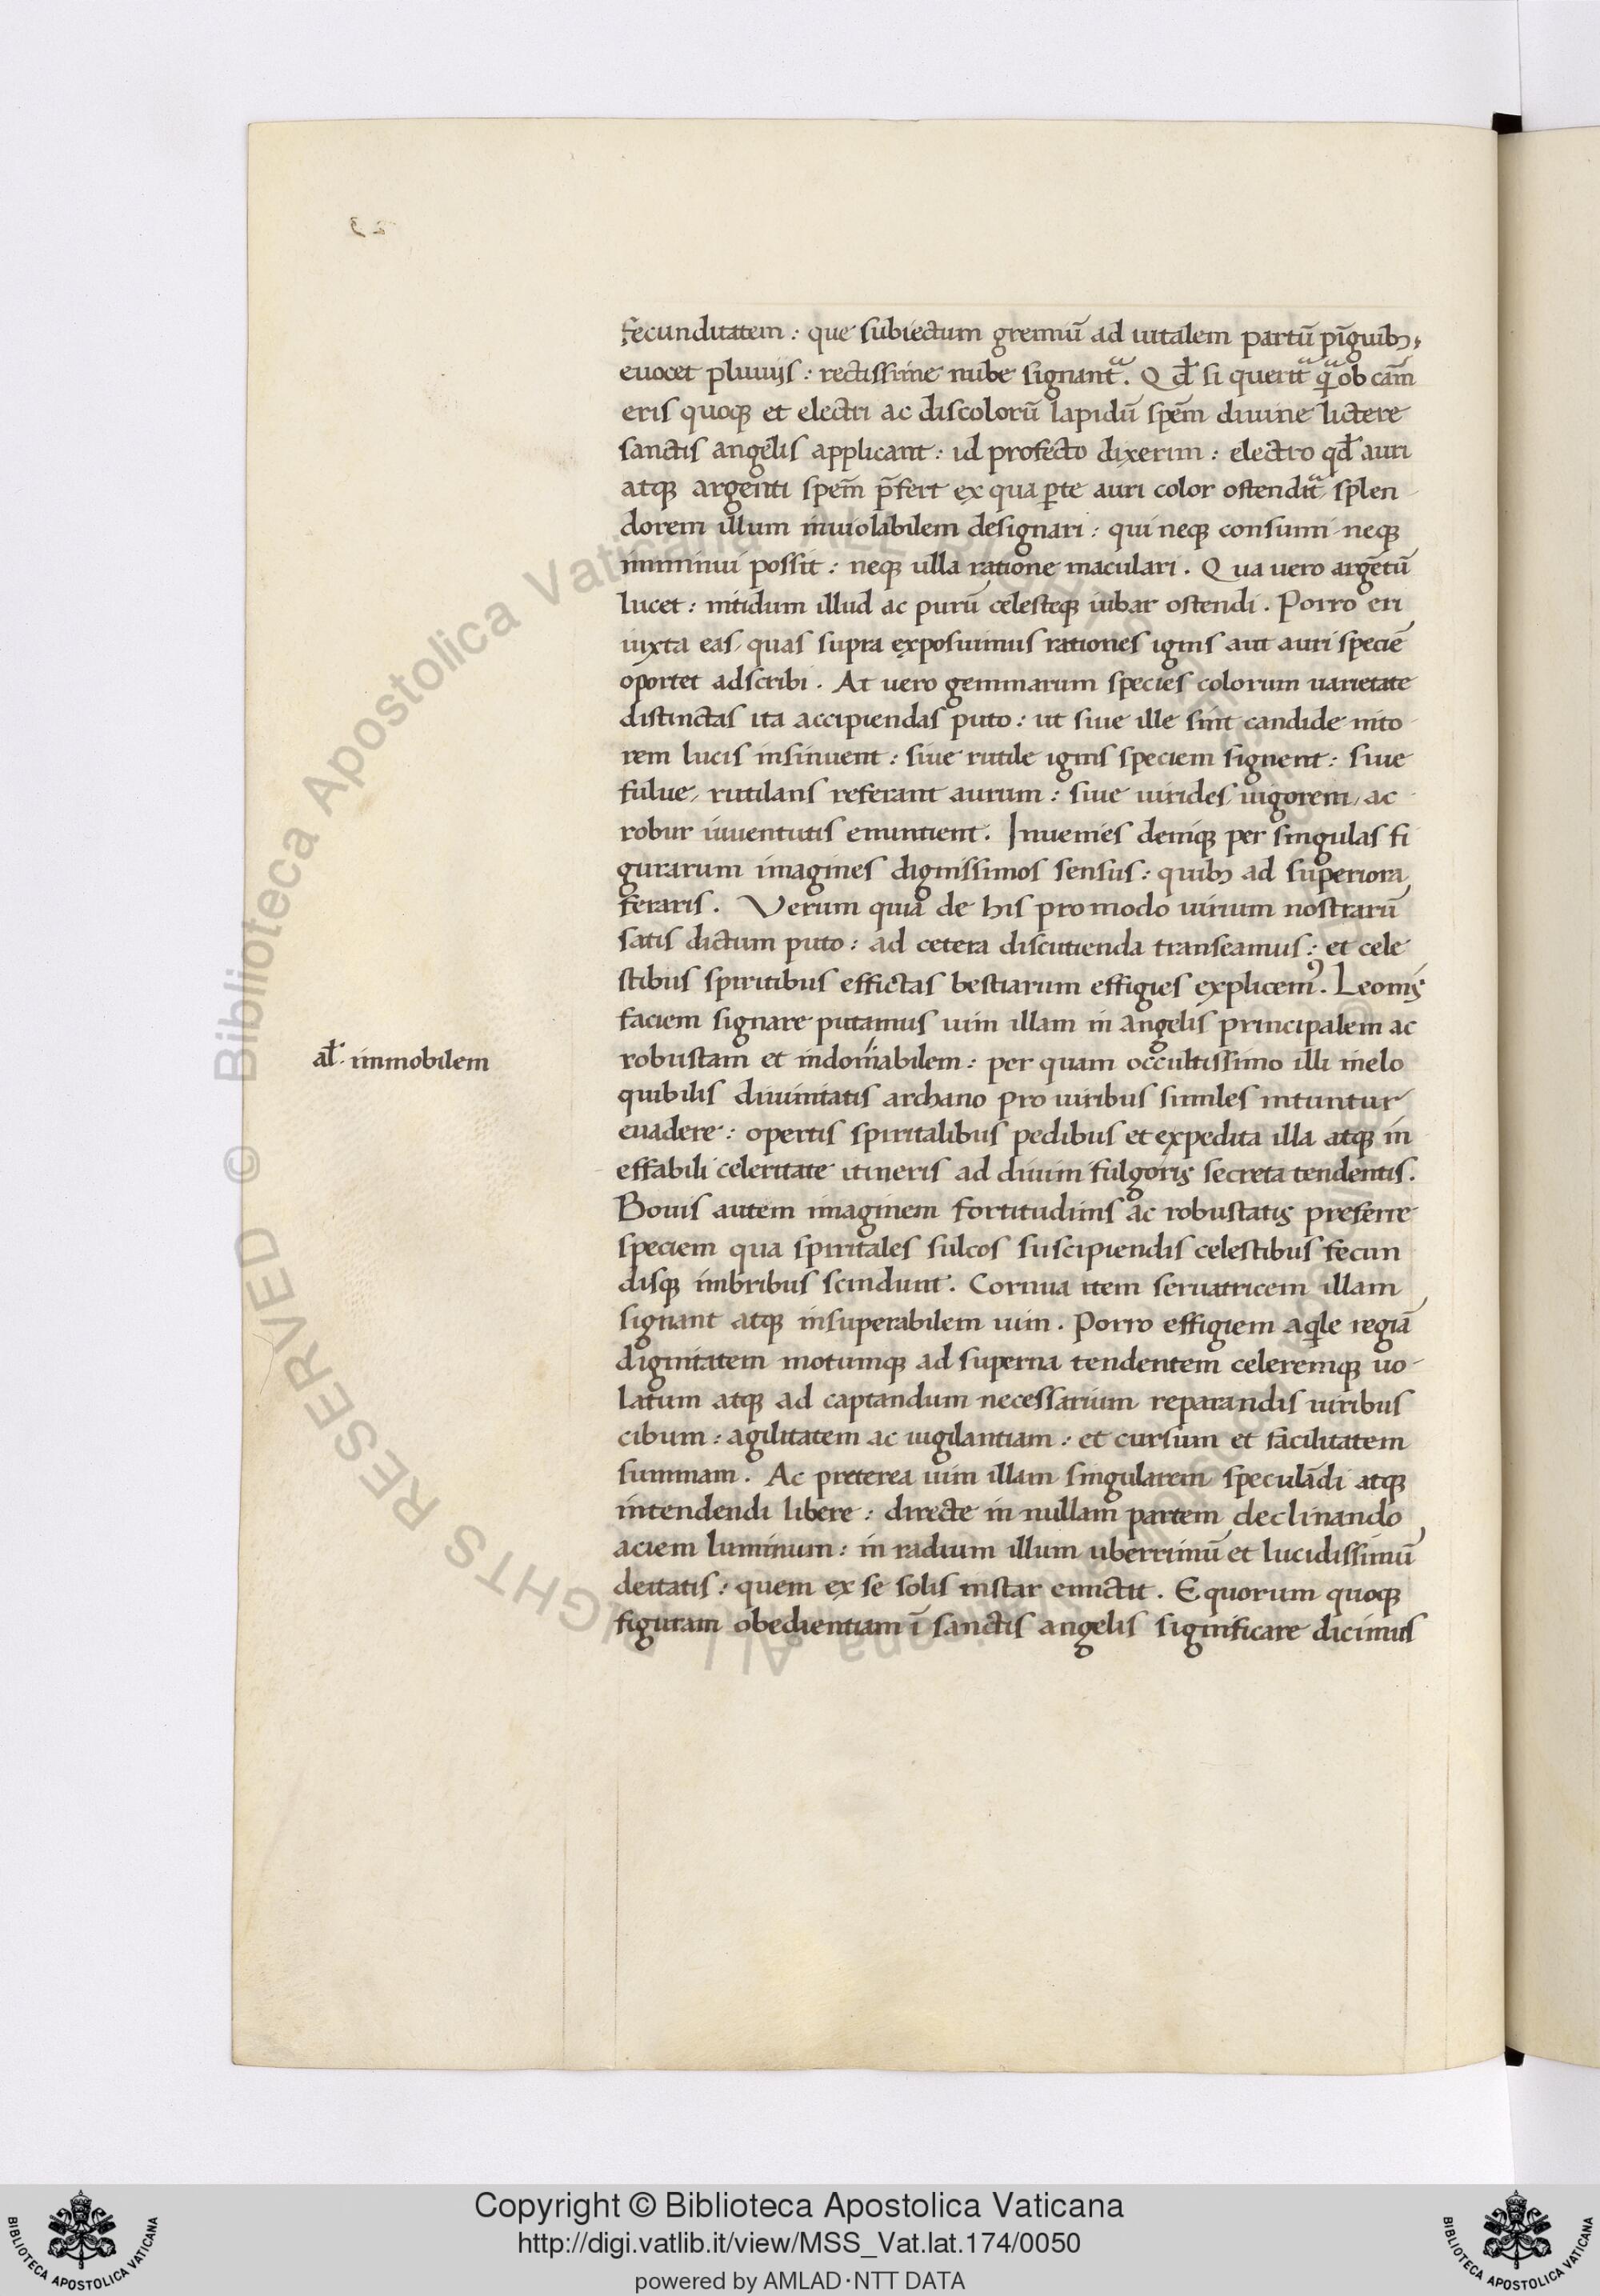 fecunditatem : que subiectum gremiū ad uitalem partū pīguibꝫ
euocet pluuijs : rectissime nube signantᵃ. Qđ si queritᵃ qᵃ ob cām
eris quoqꝫ et electri ac discolorū lapidū spēm diuine lictere
sanctis angelis applicant : id profecto dixerim : electro qđ auri
atqꝫ argenti spem̄ p̄fert ex qua ꝑte auri color ostenditᵃ splen
dorem illum inuiolabilem designari : qui neqꝫ consumi neqꝫ
imminui possit : neqꝫ ulla ratione maculari . Qua uero argētū
lucet : nitidum illud ac purū celesteqꝫ iubar ostendi . Porro eri
iuxta eas / quas supra exposuimus rationes ignis aut auri speciē
oportet adscribi . At uero gemmarum species colorum uarietate
distinctas ita accipiendas puto : ut siue ille sint candide nito
rem lucis insinuent : siue rutile ignis speciem signent : siue
fulue / rutilans referant aurum : siue uirides / uigorem / ac
robur iuuentutis enuntient . Inuenies deniqꝫ per singulas fi
gurarum imagines dignissimos sensus : quibꝫ ad superiora
feraris . Verum quia de his pro modo uirium nostrarū
satis dictum puto : ad cetera discutienda transeamus : et cele
stibus spiritibus effictas bestiarum effigies explicemꝰ . Leonis
faciem signare putamus uim illam in angelis principalem ac
al̄. immobilem
robustam et indomabilem : per quam occultissimo illi inelo
quibilis diuinitatis archano pro uiribus similes nituntur
euadere : opertis spiritalibus pedibus et expedita illa atqꝫ in
effabili celeritate itineris ad diuini fulgoris secreta tendentis .
Bouis autem imaginem fortitudinis ac robustatis preferre
speciem qua spiritales sulcos suscipiendis celestibus fecun
disqꝫ imbribus scindunt . Cornua item seruatricem illam
signant atqꝫ insuperabilem uim . Porro effigiem aqͥle regiā
dignitatem motumqꝫ ad superna tendentem celeremqꝫ uo-
latum atqꝫ ad captandum necessarium reparandis uiribus
cibum : agilitatem ac uigilantiam : et cursum et facilitatem
summam . Ac preterea uim illam singularem speculādi atqꝫ
intendendi libere : directe in nullam partem declinando
aciem luminum : in radium illum uberrimū et lucidissimū
deitatis : quem ex se solis instar emictit . Equorum quoqꝫ
figuram obedientiam ī sanctis angelis significare dicimus
© Biblioteca Apostolica Vaticana ALL RIGHTS RESERVED
Copyright © Biblioteca Apostolica Vaticana
http://digi.vatlib.it/view/MSS_Vat.lat.174/0050
powered by AMLAD·NTT DATA
BIBLIOTECA APOSTOLICA VATICANA
BIBLIOTECA APOSTOLICA VATICANA